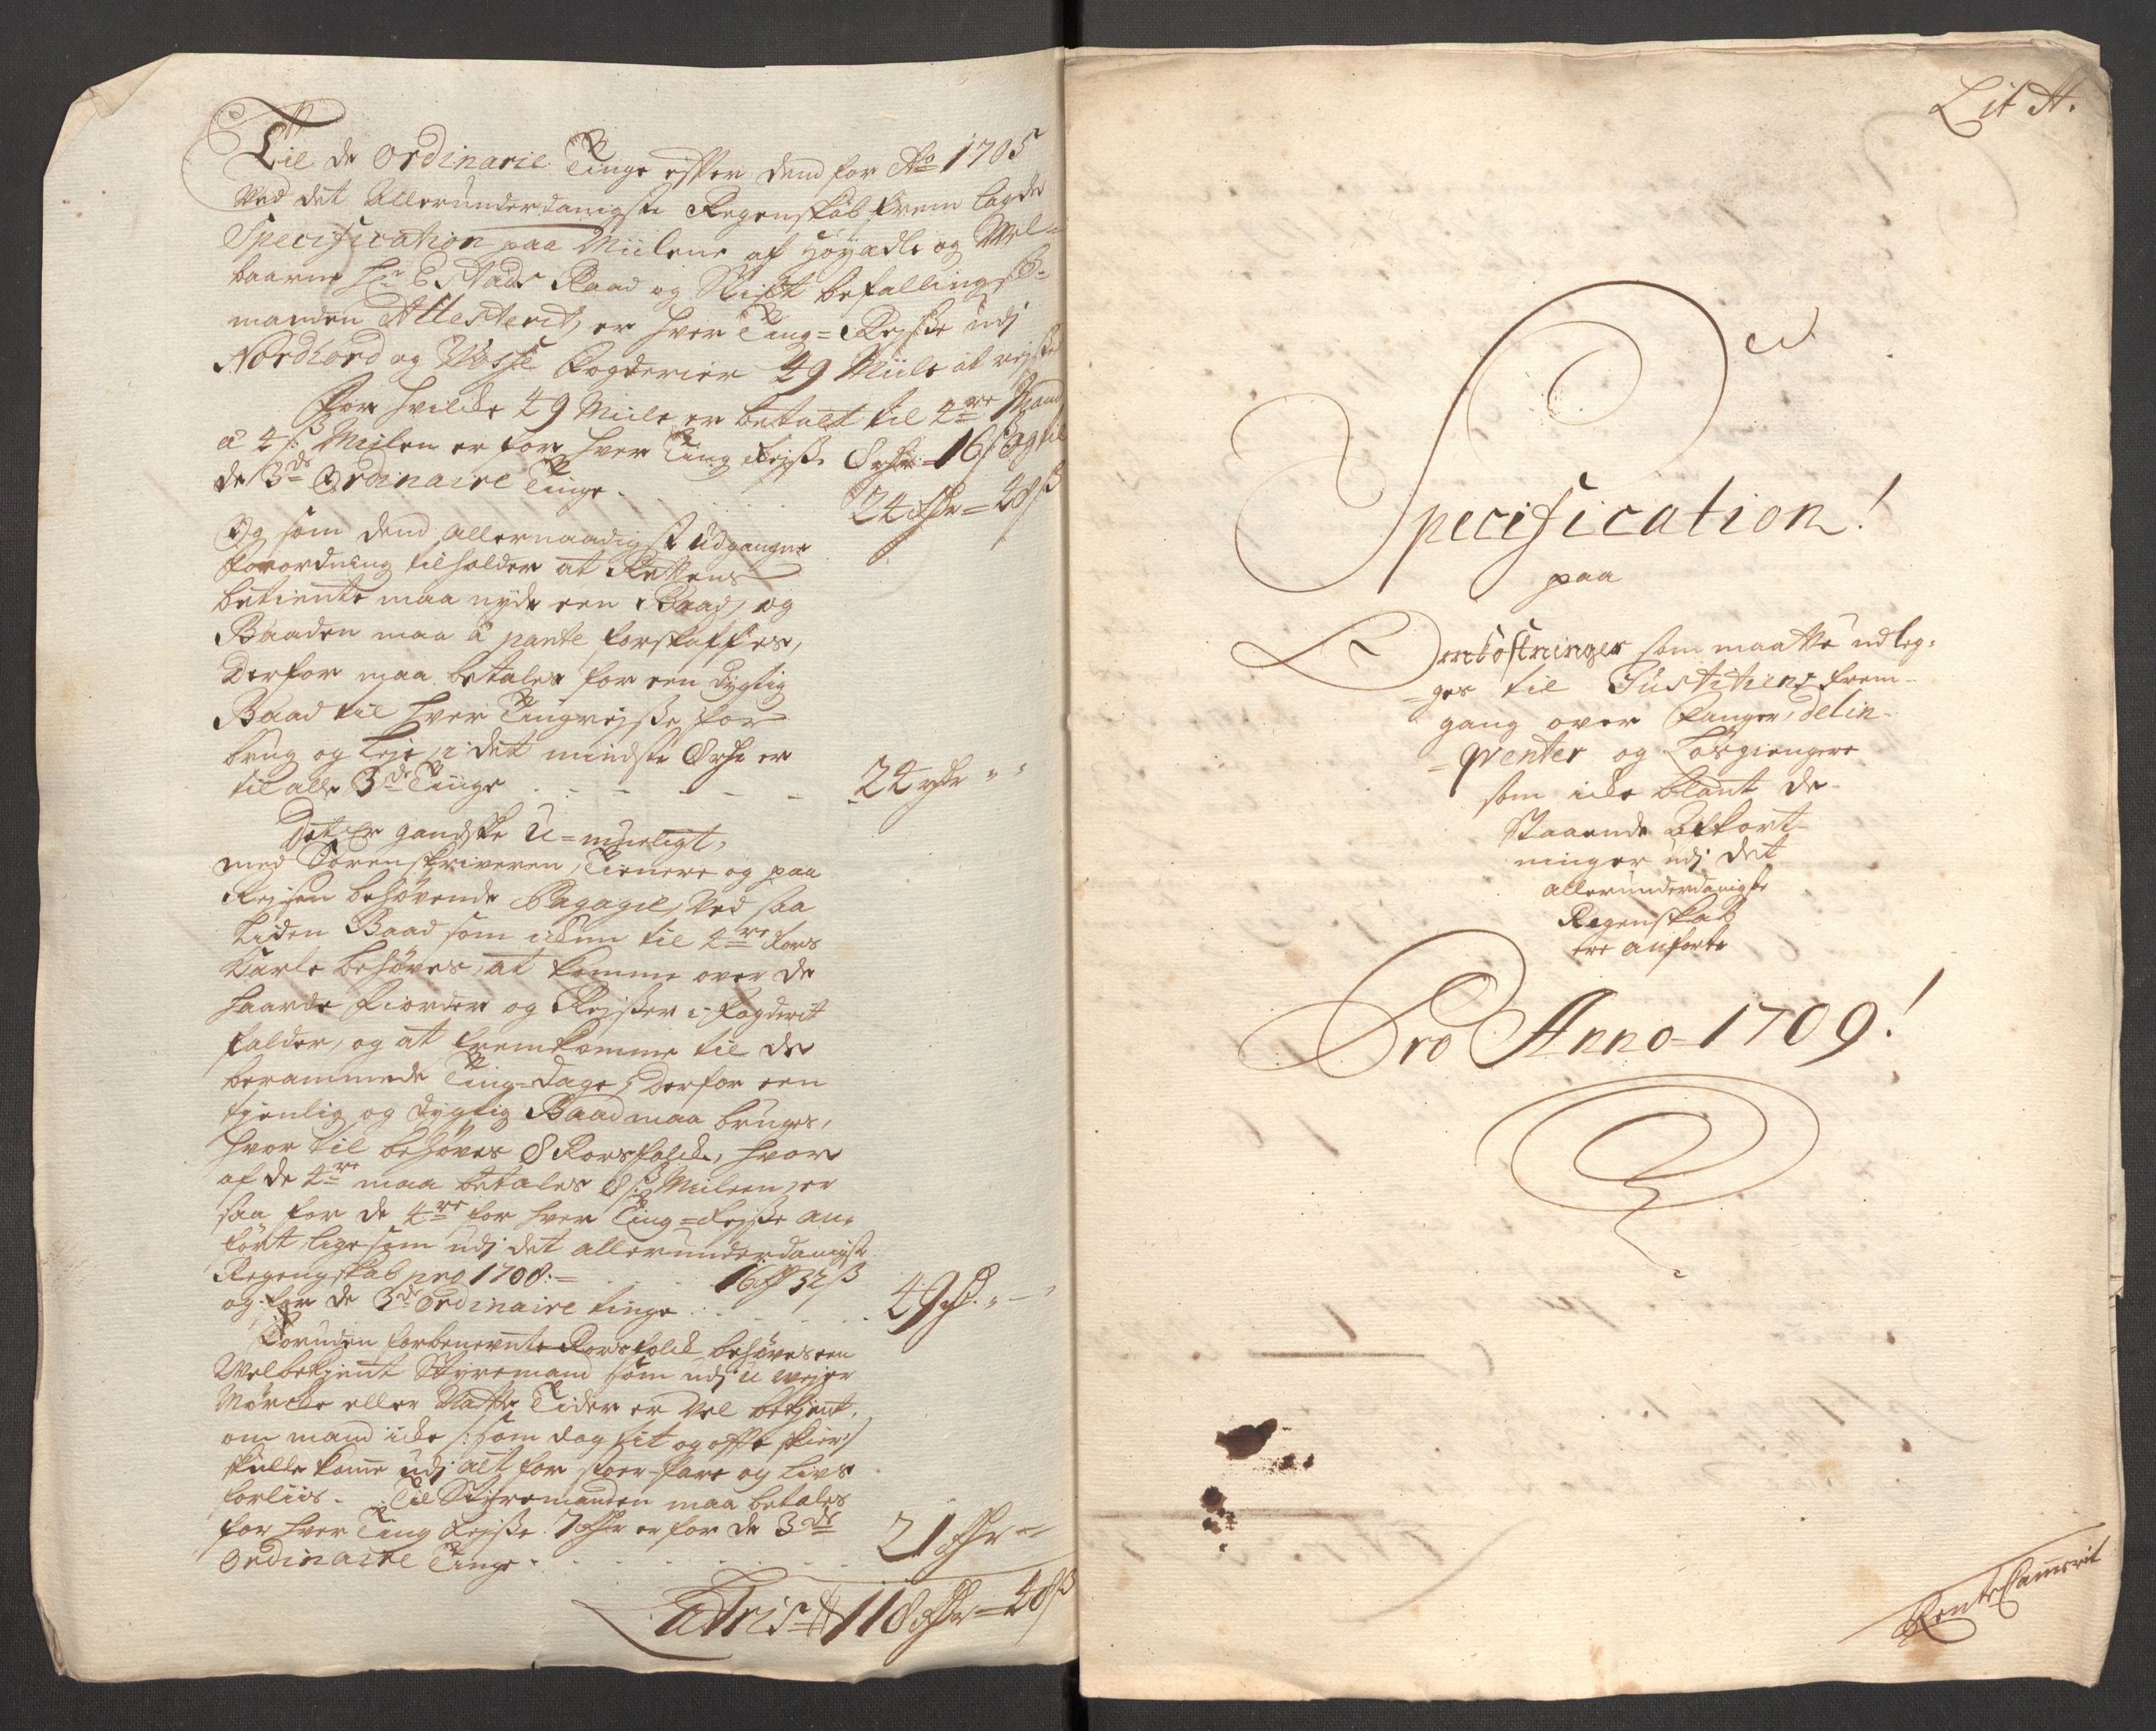 Til de Ordinarie Tinge efter dend for Ao 1705
Ved det Allerunderdanigste Regenskab frem lagde
Specification paa Miilene af Høyædle og Vel-
baarne Hr Estads Raad og Stift befallings-
manden Attesterit, er hver Ting-Rejse udj
Nordhord og Vosse Fogderier 49 Miile at rejse
For hvilke 49 Miile er betalt til 4re Mand
a 4 s: Miilen er for hver Ting Rejse 8 rdr - 16 s og til
de 3de Ordinaire Tinge.
24 rdr = 48 s
Og som dend allernaadigst udgangne
Forordning tilholder at Rettens
betiente maa nyde een Baad, og
Baaden maa a parte forskaffes,
Derfor maa betales for een dygtig
Baad til hver Tingrejse, for
brug og leje, i det mindste 8 rdr er
til alle 3de Tinge - - - - - 24 rdr " "
Det Er gandske U-mueligt,
med Sorenskriveren, Tienere og paa
Rejsen behøvende Bagagie, Ved saa
liden Baad som ickun til 4re Rors
Karle behøves, at komme over de
haarde Fiorder og Rejser i Fogderit
falder, og at fremkomme til de
berammede Ting-Dage, Derfor een
tienlig og dygtig Baad maa bruges,
hvor til behøves 8 Rorsfolck, hvor
af de 4re maa betales 8 s: Miilen, er
saa for de 4re for hver Ting-Rejse an-
ført, lige som udj det allerunderdanigste
Regengskab pro 1708:- 16 rdr 32 s
og for de 3de Ordinaire tinge . . . 49 rdr. " - "
Foruden forbenevnte Rorsfolck behøves een
Velbekient Styremand som udj U-vejer
Mørcke eller Natte Tider er Vel bekient,
om mand icke /: som dag tit og offte skier :/
skulle kome udj alt for stoer fare og livs
forliis. Til Styremanden maa betales
for hver Ting Rejse 7 rdr er for de 3de
Ordinaire Tinge . . . . . 21 rdr -
Latris 118 rdr = 48 s
Lit A.
Specification!
paa
Omkostninger som maatte udleg-
ges til Justitiens frem-
gang over Fanger, delin-
qventer og Løsgiengere
som icke blant de
Staaende Afkort-
ninger udj det
allerunderdanigste
Regenskab
ere anførte
Pro Anno 1709!
Rente Camerit